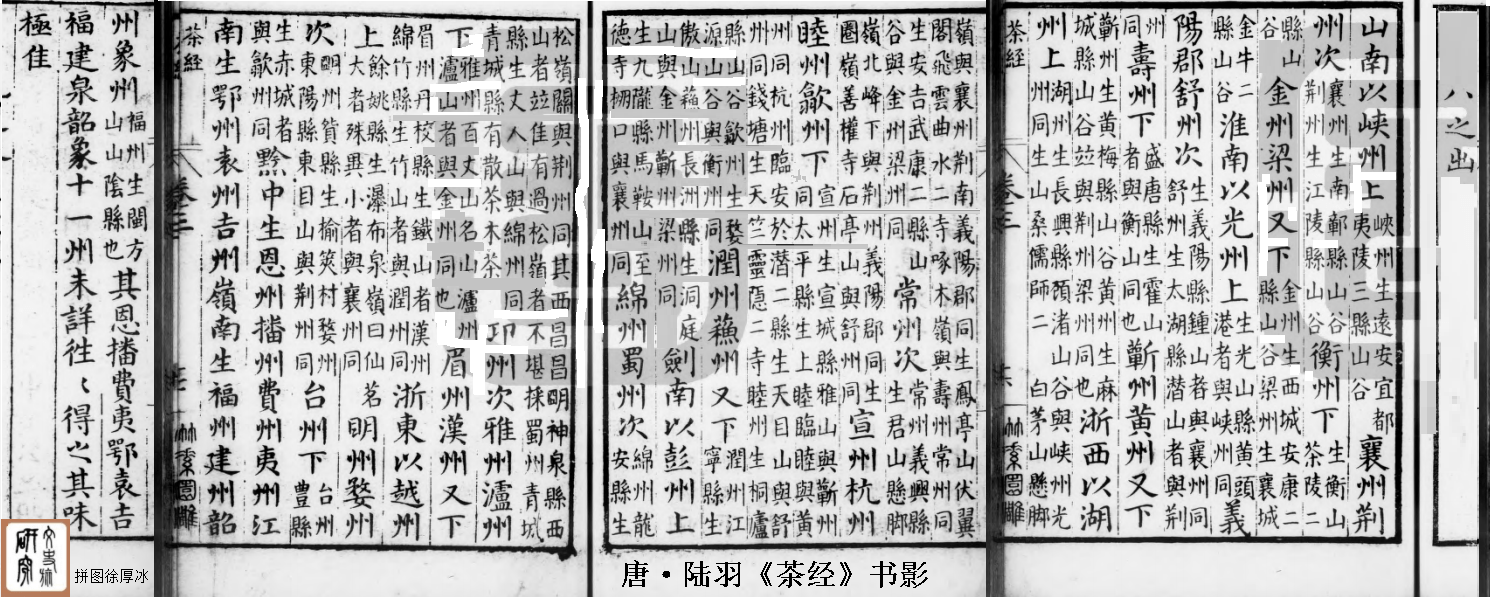 八之出
山南以峽州上峽州生遠安宜都夷陵三縣山谷襄州荆
州次襄州生南鄣縣山谷荆州生江陵縣山谷衡州下生衡山茶陵二
縣山谷金州梁州又下金州生西城安康二縣山谷梁州生襄城
金牛二縣山谷淮南以光州上生光山縣黄頭港者與峽州同義
陽郡舒州次生義陽縣鍾山者與襄州同舒州生太湖縣潜山者與荆
州同壽州下盛唐縣生霍山者與衡山同也蘄州黄州又下
蘄州生黄梅縣山谷黄州生麻城縣山谷竝與荆州梁州同也浙西以湖
州上湖州生長興縣頋渚山谷與峽州光州同生山桑儒師二 白茅山懸脚
茶経 卷三 竹素園雕
嶺與襄州荆南義陽郡同生鳳亭山伏翼
閣飛雲曲水二寺啄木嶺與壽州常州同
生安吉武康二縣山谷與金州梁州同常州次常州義興縣生君山懸脚
嶺北峰下與荆州義陽郡同生圈嶺善權寺石亭山與舒州同宣州杭州
睦州歙州下宣州生宣城縣雅山與蘄州同太平縣生上睦臨睦與黄
州同杭州臨安於潜二縣生天目山與舒州同錢塘生天竺靈隠二寺睦州生桐廬
縣山谷歙州生婺源山谷與衡州同潤州蘓州又下潤州江寧縣生
傲山蘓州長洲縣生洞庭山與金州蘄州梁州同劍南以彭州上
生九隴縣馬鞍山至德寺棚口與襄州同綿州蜀州次綿州龍安縣生
松嶺關與荆州同其西昌昌明神泉縣西山者竝佳有過松嶺者不堪採蜀州青城
縣生丈人山與綿州同青城縣有散茶木茶邛州次雅州瀘州
下雅州百丈山名山瀘州瀘山者與金州同也眉州漢州又下
眉州丹校縣生鐵山者漢州綿竹縣生竹山者與潤州同浙東以越州
上餘姚縣生瀑布泉嶺曰仙茗大者殊異小者與襄州同明州婺州
次明州貿縣生榆筴村婺州東陽縣東目山與荆州同台州下台州豊縣
生赤城者與歙州同黔中生恩州播州費州夷州江
南生鄂州袁州吉州嶺南生福州建州韶
茶経 卷三 竹素園雕
州象州福州生閩方山山陰縣也其恩播費夷鄂袁吉
福建泉韶象十一州未詳往〻得之其味
極佳
拼图徐厚冰
唐·陆羽《茶经》书影